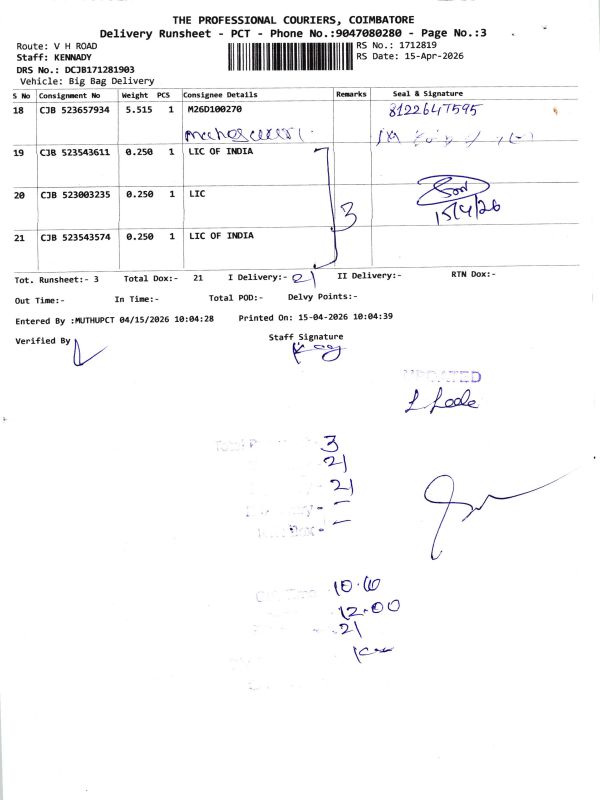 THE PROFESSIONAL COURIERS, COIMBATORE
Delivery Runsheet - PCT - Phone No.:9047080280 - Page No.:3
Route: V H ROAD
RS No.: 1712819
Staff: KENNADY
RS Date: 15-Apr-2026
DRS No.: DCJB171281903
Vehicle: Big Bag Delivery
S No Consignment No Weight PCS Consignee Details Remarks Seal & Signature
18 CJB 523657934 5.515 1 M26D100270 8122647595
19 CJB 523543611 0.250 1 LIC OF INDIA
20 CJB 523003235 0.250 1 LIC
3 15/4/26
21 CJB 523543574 0.250 1 LIC OF INDIA
Tot. Runsheet:- 3 Total Dox:- 21 I Delivery:- 21 II Delivery:- RTN Dox:-
Out Time:- In Time:- Total POD:- Delvy Points:-
Entered By :MUTHUPCT 04/15/2026 10:04:28 Printed On: 15-04-2026 10:04:39
Verified By
Staff Signature
UPDATED
3
21
21
-
-
12.00
21